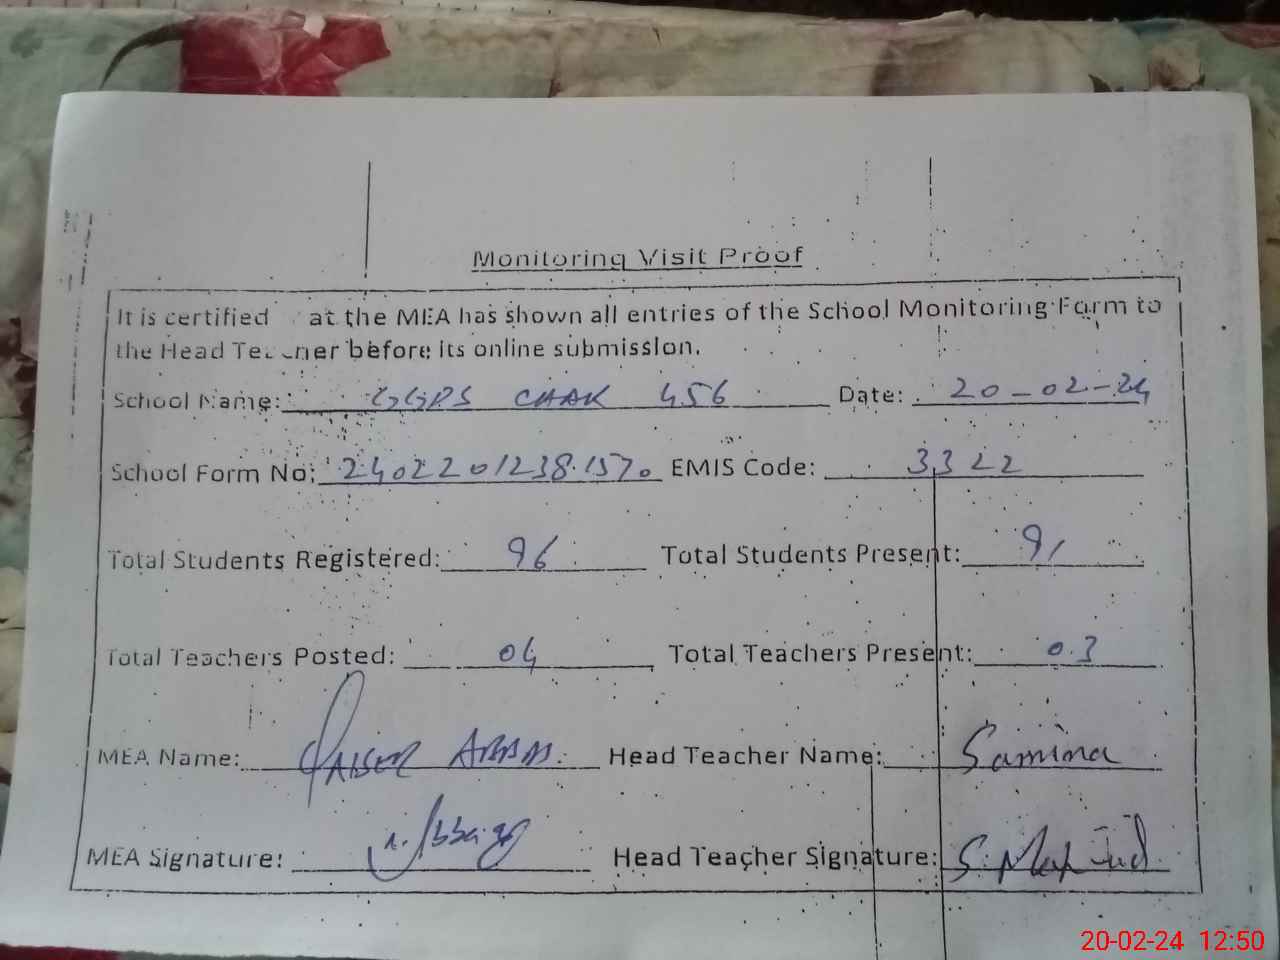 Monitoring Visit Proof
It is certified at the MEA has shown all entries of the School Monitoring Form to
the Head Teacher before its online submission.
School Name: GGPS CHAK 456 Date: 20-02-24
School Form No: 2402201238.1570 EMIS Code: 3322
Total Students Registered: 96 Total Students Present: 91
Total Teachers Posted: 04 Total Teachers Present: 03
MEA Name: QAISER ABBAS. Head Teacher Name: Samina
MEA Signature: Head Teacher Signature:
20-02-24 12:50